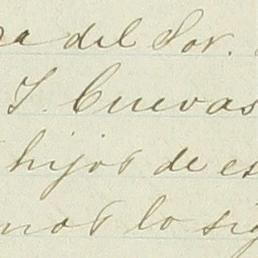 ra del Sor.
I. Cuevas
hijos de es
mos lo sig